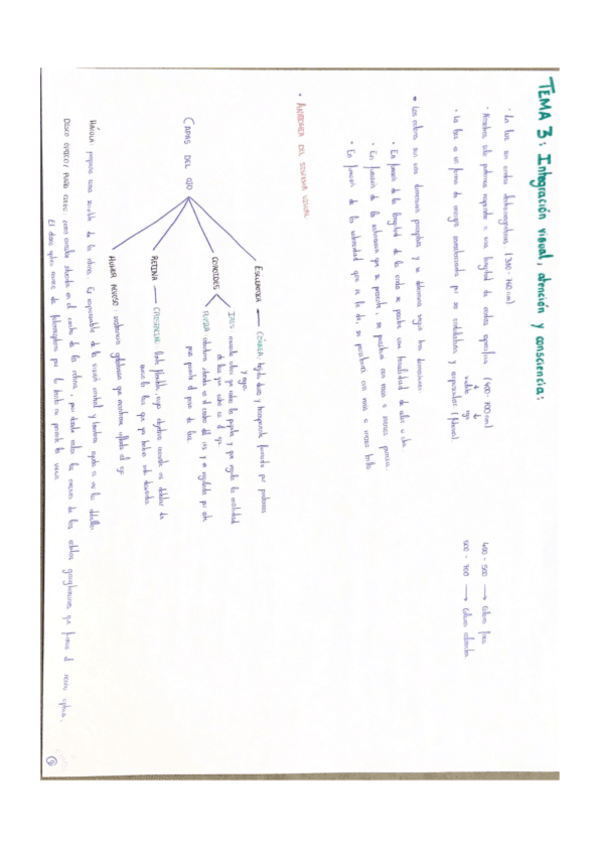 TEMA 3: Integración visual, atención y consciencia:
• La luz son ondas electromagnéticas (380-760 nm)
• Nosotros solo podemos responder a una longitud de ondas específica (400-700 nm)
violeta rojo
400 - 500 → colores fríos
500 - 700 → colores calientes
• La luz es un forma de energía caracterizada por ser ondulatoria y corpuscular (fotones).
• Los colores son una dimensión perceptiva y se determina según tres dimensiones:
• En función de la longitud de la onda se percibe una tonalidad de color u otra.
• En función de la saturación que se presente, se percibirá con mayor o menor pureza.
• En función de la intensidad que se le de, se percibirá con más o menos brillo
• ANATOMÍA DEL SISTEMA VISUAL
CAPAS DEL OJO
ESCLERÓTICA — CÓRNEA: tejido duro y transparente formado por proteínas
y agua.
COROIDES
IRIS: músculo que rodea la pupila y que regula la cantidad
de luz que entra en el ojo.
PUPILA: abertura situada en el centro del iris y es regulada por este
para permitir el paso de luz.
RETINA — cuyo objetivo consiste en detectar la
luz que
HUMOR ACUOSO: sustancia gelatinosa que mantiene inflado el ojo
FÓVEA: pequeña zona sensible de la retina. Es responsable de la visión central y también ayuda a ver los detalles.
DISCO ÓPTICO / PUNTO CIEGO: zona situada en el centro de la retina, por donde salen los axones de las células ganglionares que forman el nervio óptico.
El disco óptico carece de fotorreceptores por lo tanto no permite la visión.